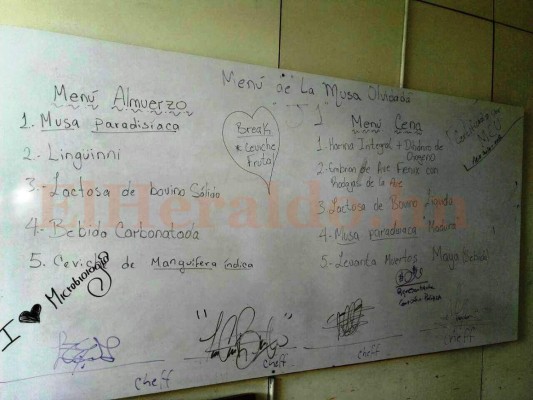 Menú de La Musa Olvidada
Menú Almuerzo
1. Musa paradisiaca
2. Lingüinni
3. Lactosa de bovino Sólido
4. Bebida Carbonatada
5. Ceviche de Manguifera índica
Break
* Ceviche
Frutal
Menú Cena
1. Harina Integral + Dinámo de
Oxigeno
2. Embrion de Ave Fenix con
de la Ave
3. Lactosa de Bovino Líquida
4. Musa paradisiaca "Maduro"
5. Levanta Muertos Maya (Bebida)
I ♥ Microbiología
cheff
cheff
cheff
cheff
ElHeraldo.hn